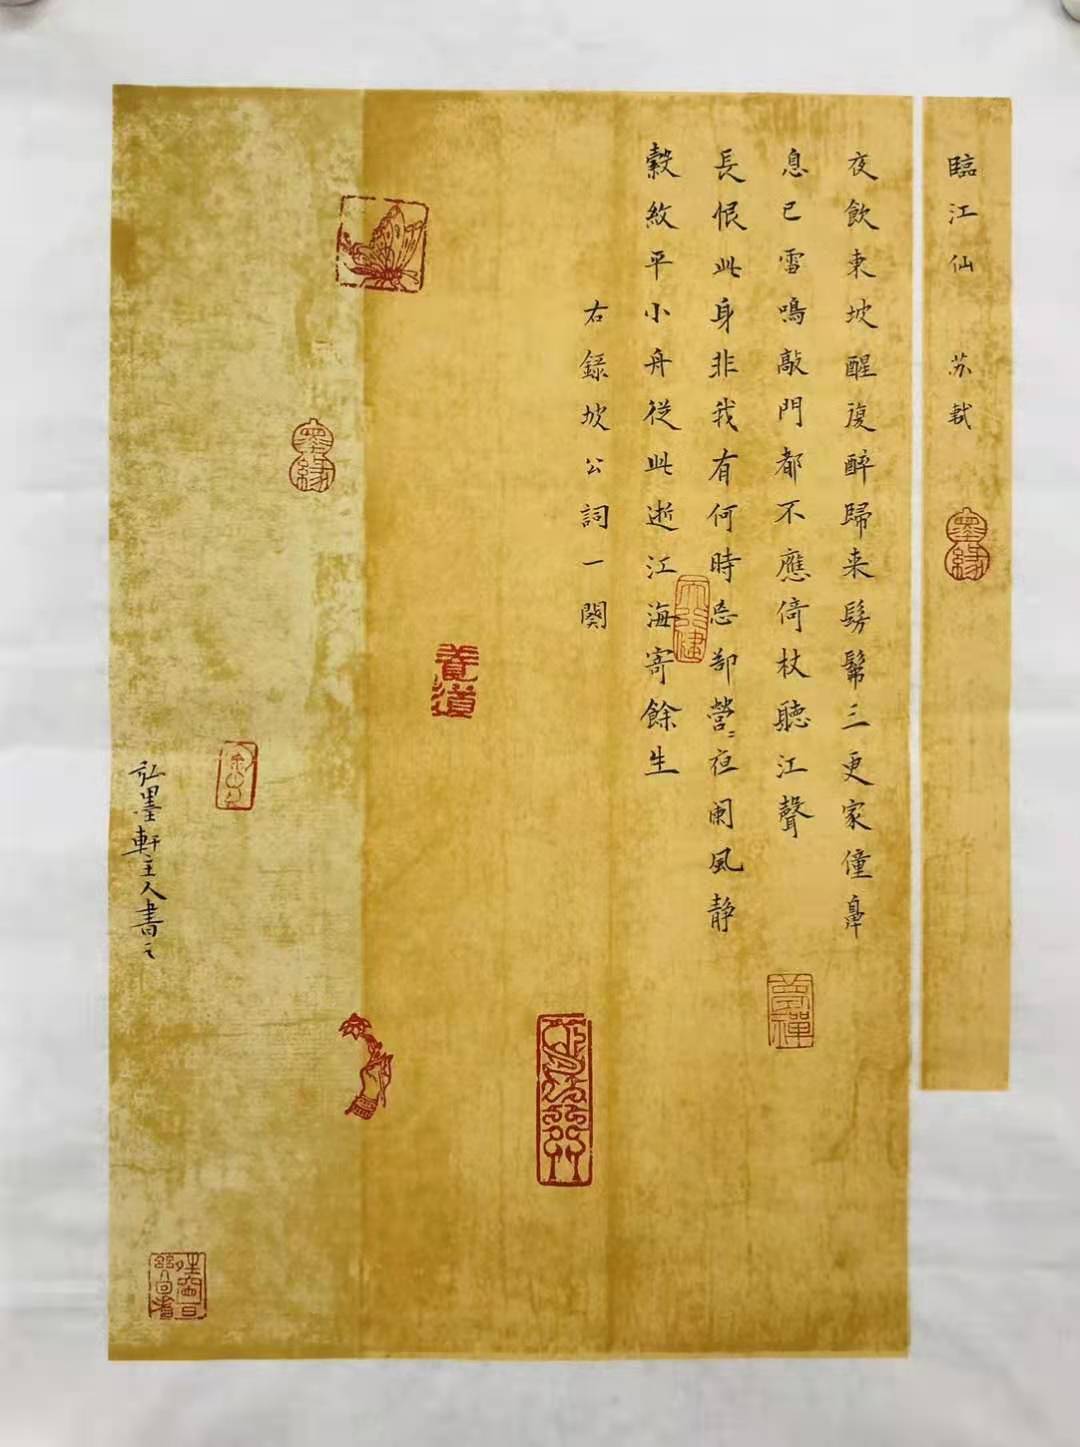 臨江仙 苏軾
墨緣
夜飲東坡醒復醉歸来髣髴三更家僮鼻
息已雷鳴敲門都不應倚杖聽江聲
長恨此身非我有何時忘郤營〻夜闌風静
縠紋平小舟從此逝江海寄餘生
右録坡公詞一闋
天行健
養道
墨緣
弘墨軒主人書之